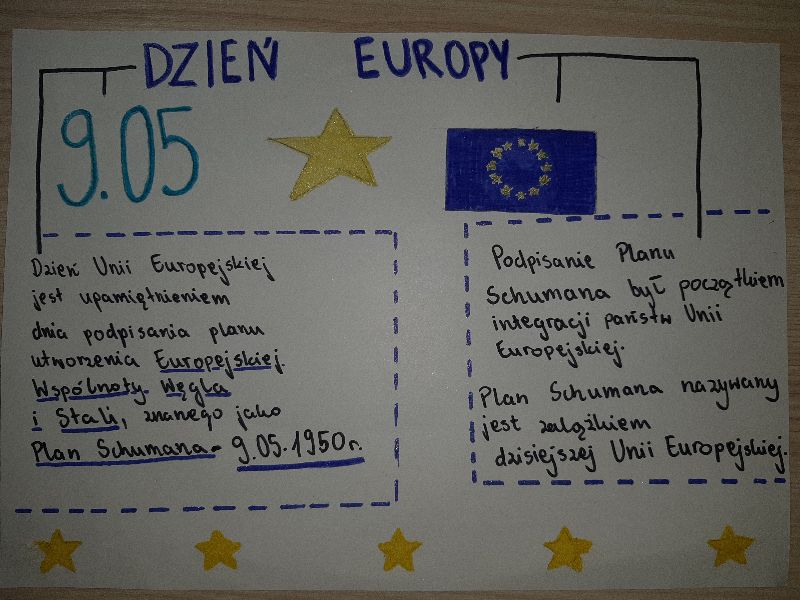 DZIEŃ EUROPY
9.05
Dzień Unii Europejskiej
jest upamiętnieniem
dnia podpisania planu
utworzenia Europejskiej
Wspólnoty Węgla
i Stali, znanego jako
Plan Schumana - 9.05.1950r.
Podpisanie Planu
Schumana był początkiem
integracji państw Unii
Europejskiej.
Plan Schumana nazywany
jest zalążkiem
dzisiejszej Unii Europejskiej.